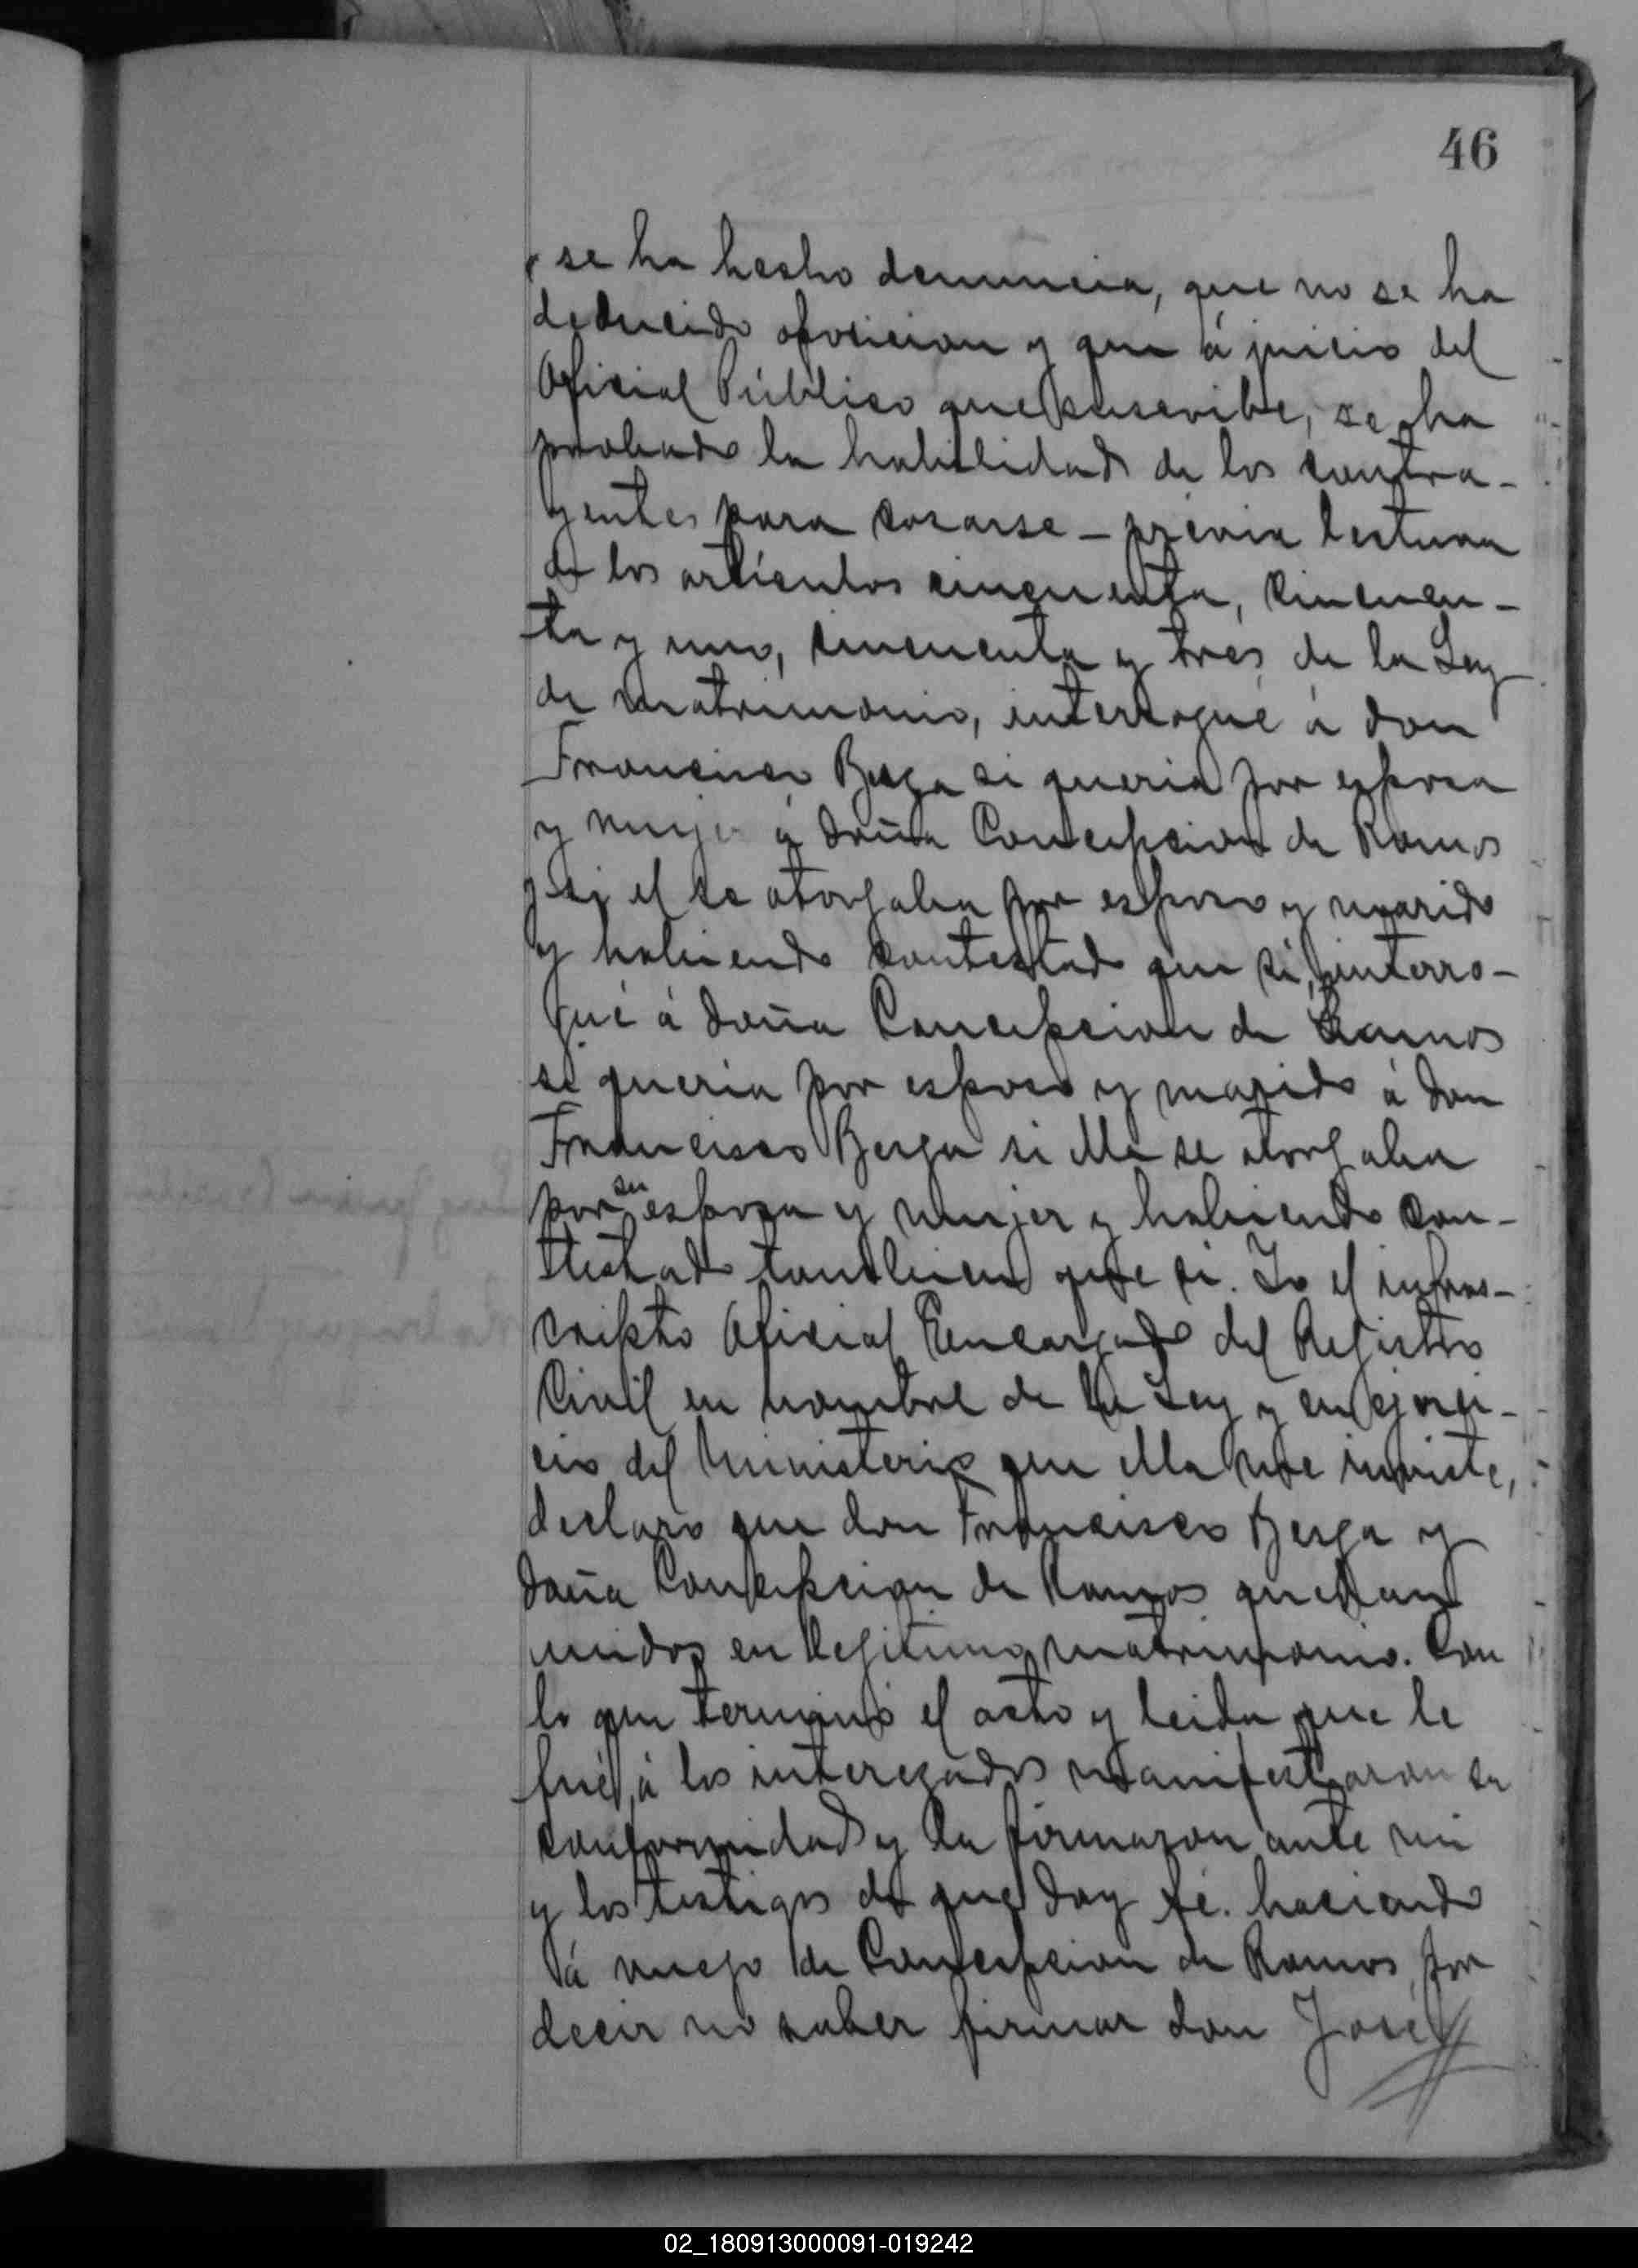 46
se ha hecho denuncia, que no se ha
deducido oposicion y que á juicio del
Oficial Público que suscribe, se ha
probado la habilidad de los contra-
yentes para casarse - prévia lectura
de los artículos cincuenta, cincuen-
ta y uno, cincuenta y tres de la Ley
de matrimonio, interrogué á don
Francisco Berga si queria por esposa
y mujer á doña Concepcion de Ramos
y si el se otorgaba por esposo y marido
y habiendo contestado que sí, interro-
gué á doña Concepcion de Ramos
si queria por esposo y marido á don
Francisco Berga si ella se otorgaba
por su esposa y mujer y habiendo con-
testado tambien que si. Yo el infras-
cripto Oficial Encargado del Registro
Civil en nombre de la Ley y en ejerci-
cio del Ministerio que ella me inviste,
declaro que don Francisco Berga y
doña Concepcion de Ramos quedan
unidos en legitimo matrimonio. Con
lo que terminó el acto y leida que le
fué, á los interezados manifestaron su
conformidad y la firmaron ante mi
y los testigos de que doy fé. haciendo
á ruego de Concepcion de Ramos, por
decir no saber firmar don José
02_180913000091-019242